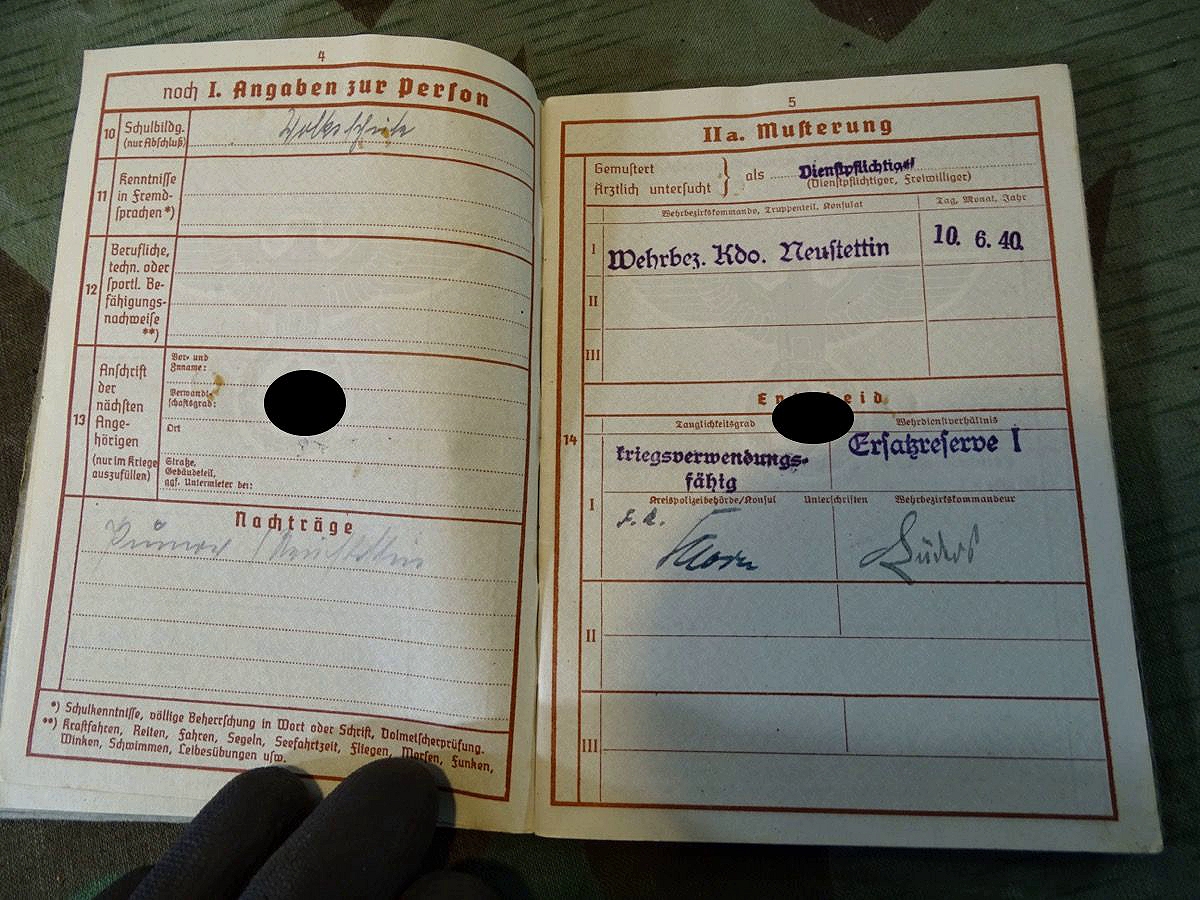 4
noch I. Angaben zur Person
10 Schulbildg. Volksschule
(nur Abschluß)
11 Kenntnisse
in Fremd-
sprachen*)
12 Berufliche,
techn. oder
sportl. Be-
fähigungs-
nachweise
**)
13 Anschrift
der
nächsten
Ange-
hörigen
(nur im Kriege
auszufüllen)
Vor- und
Zuname:
Verwandt-
schaftsgrad:
Ort
Straße,
Gebäudeteil,
ggf. Untermieter bei:
Nachträge
*) Schulkenntnisse, völlige Beherrschung in Wort oder Schrift, Dolmetscherprüfung.
**) Kraftfahren, Reiten, Fahren, Segeln, Seefahrtzeit, Fliegen, Morsen, Funken,
Winken, Schwimmen, Leibesübungen usw.
5
IIa. Musterung
Gemustert
Ärztlich untersucht } als Dienstpflichtiger
(Dienstpflichtiger, Freiwilliger)
Wehrbezirkskommando, Truppenteil, Konsulat Tag, Monat, Jahr
I Wehrbez. Kdo. Neustettin 10. 6. 40.
II
III
14
Tauglichkeitsgrad Wehrdienstverhältnis
kriegsverwendungs- Ersatzreserve I
fähig
I Kreispolizeibehörde/Konsul Unterschriften Wehrbezirkskommandeur
II
III